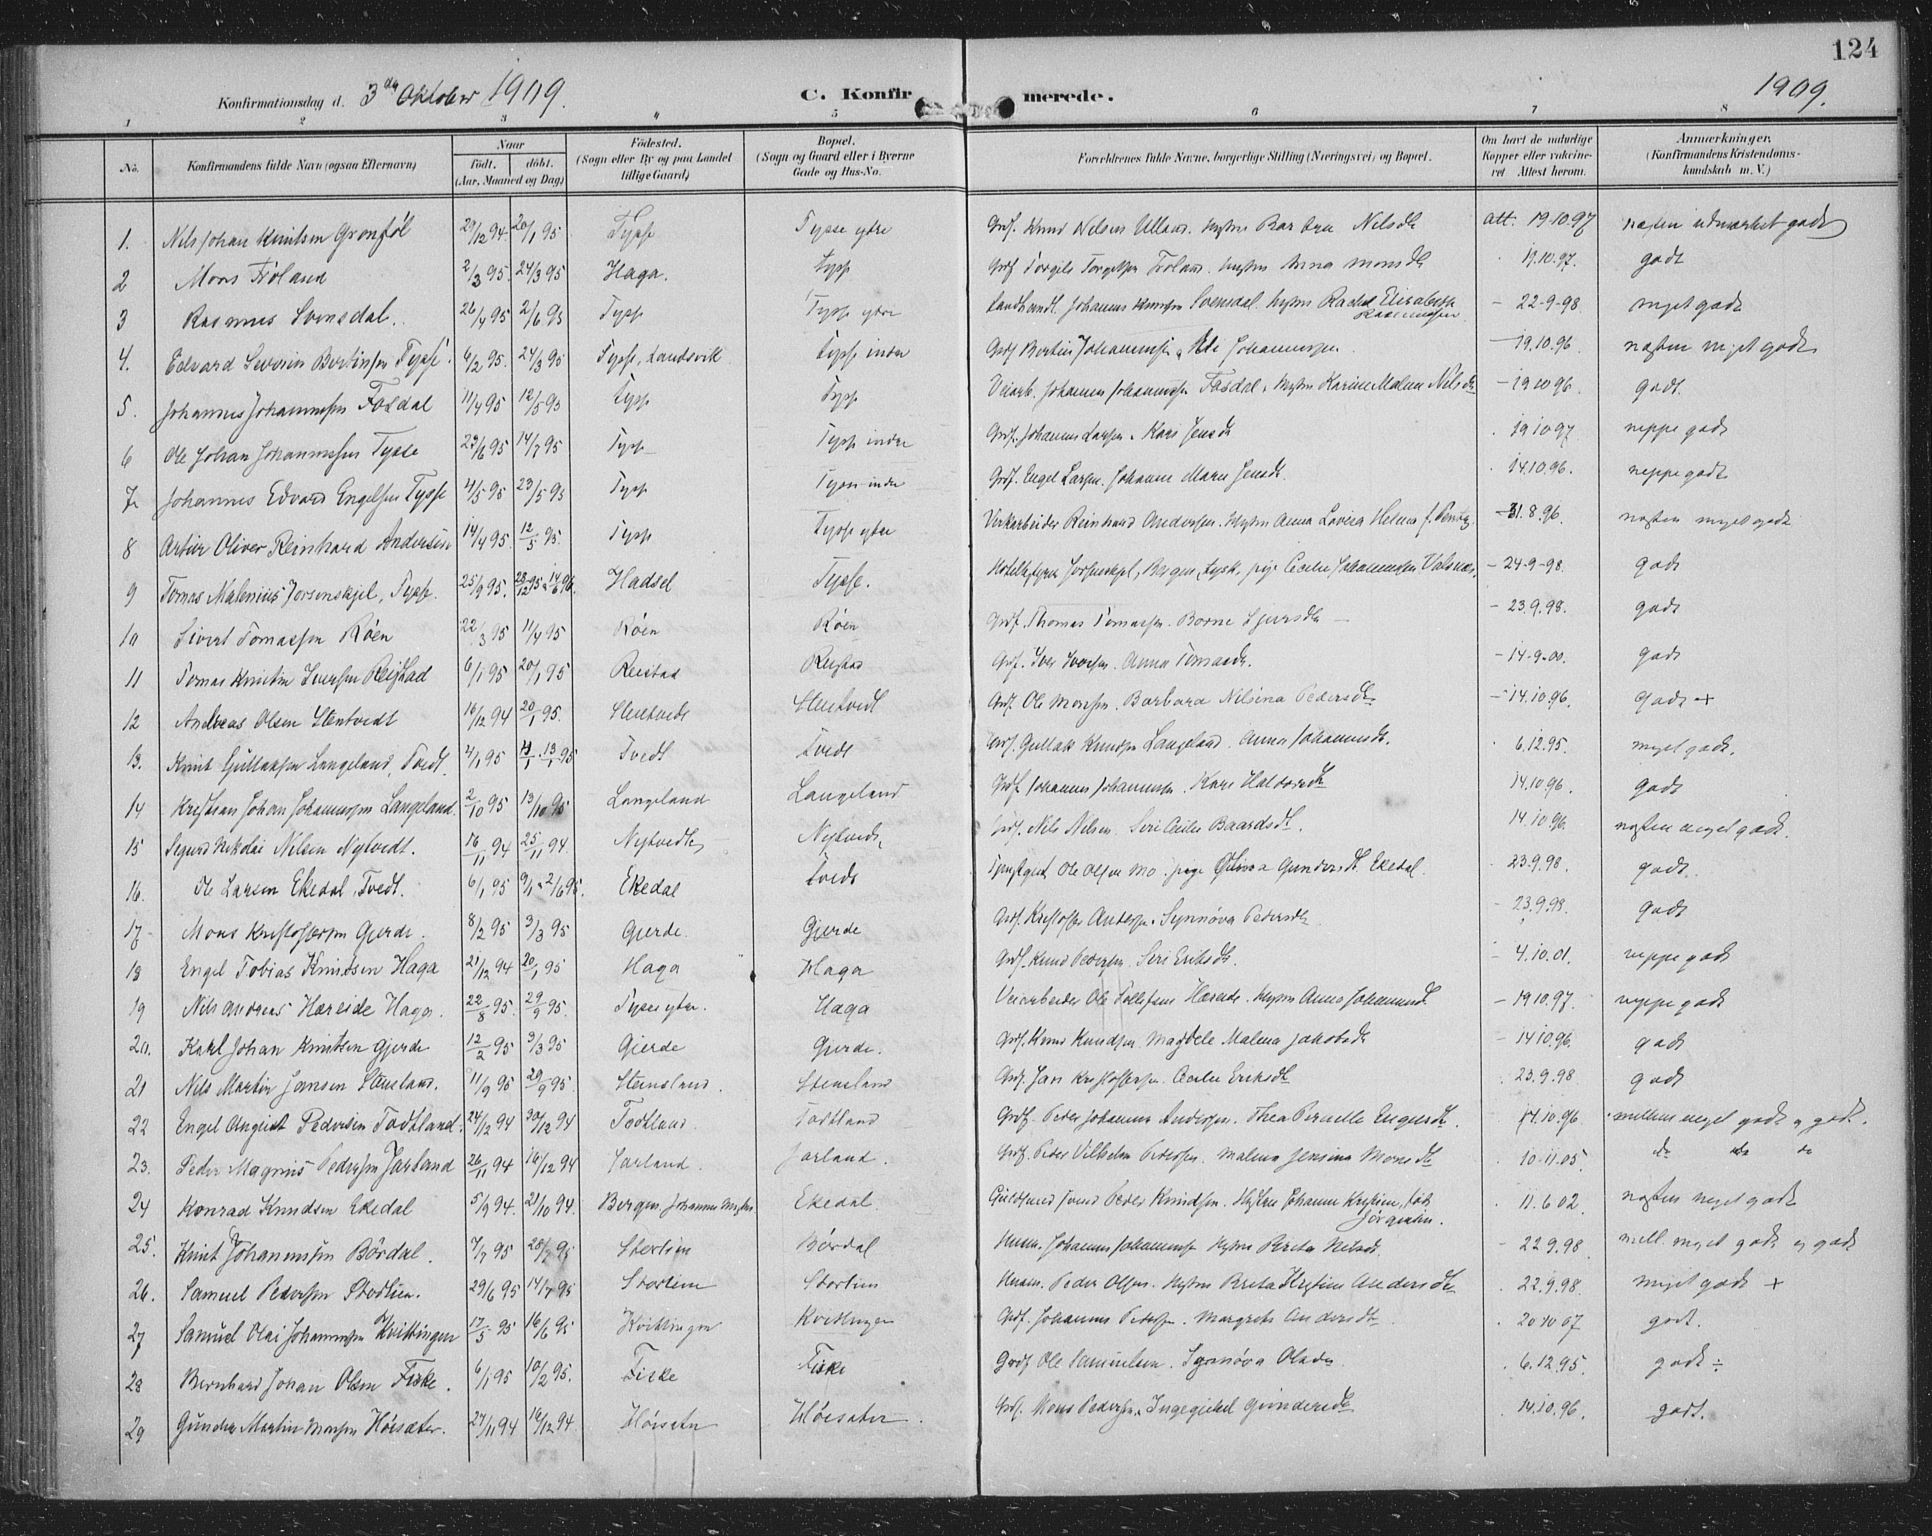 124
Konfirmationsdag d. 3die Oktober 1909. C. Konfirmerede. 1909.
1 2 3 4 5 6 7 8
No. Konfirmandens fulde Navn (ogsaa Efternavn) Naar födt. döbt. (Aar, Maaned og Dag) Födested. (Sogn eller By og paa Landet tillige Gaard) Bopæl. (Sogn og Gaard eller i Byerne Gade og Hus-No. Forældrenes fulde Navne, borgerlige Stilling (Næringsvei) og Bopæl. Om havt de naturlige Kopper eller vaksineret Attest herom. Anmærkninger. (Konfirmandens Kristendomskundskab m. V.)
1. Nils Johan Knutsen Grønføl 29/12 94 20/1 95 Tysse Tysse ytre Grdf. Knud Nelsen Ulland. Hustru Barbra Nilsdtr att. 19.10.97 næsten udmærket godt
2 Mons Frøland 2/3 95 24/3 95 Haga. Tysse Grdf Torgils Torgilsen Froland. Hustru Anna Monsdtr 19.10.97. godt
3 Rasmus Svensdal. 26/4 95 2/6 95 Tysse Tysse ytre Landhandl. Johannes Knutsen Svensdal. Hustru Rachel Elisabeth Rasmussen - 22-9-98 meget godt
4. Edvard Severin Bertinsen Tysse. 6/2 95. 24/3 95 Tysse, Landsvik Tysse indre Grdf Bertin Johannessen, Johannesen - 19.10.96 næsten meget godt
5. Johannes Johannessen Fosdal 11/4 95 12/5 95 Tysse Tysse Veiarb. Johannes Johannessen Fosdal, Hustru Karine Malene Nilsdtr - 19 10 96. godt.
6 Ole Johan Johannessen Tysse 23/6 95 14/7 95 Tysse Tysse indre Grdf. Johannes Larsen. Kari Jensdtr 19 10 97 neppe godt
7 Johannes Edvard Engelsen Tysse 4/5 95 23/5 95 Tysse Tysse indre Grdf. Engel Larsen. Johanne Marie Jensdtr 14.10.96. neppe godt
8 Artur Oliver Reinhard Andersen 14/4 95. 12/5 95. Tysse Tysse ytre Reinhard Andersen. Hustru Anna Lovisa Helena f. - 31.8.96. næsten meget godt
9 Tomas Malenius Jorsenskjel, Tysse. 25/9 95. 28/12 95 14/6 96. Hadsel Tysse. - 24-9-98. godt
10 Sivert Tomassen Röen 22/3 95 11/4 95 Röen Röen Grdf. Thomas Tomassen. - 23.9.98. godt
11 Tomas Knutin Iversen Reistad 6/1 95 20/1 95 Reistad Reistad Grdf. Iver Iversen. Anna Tomasdtr. - 14-9-00. godt
12 Andreas Olsen Stentvedt 16/12 94 20/1 95. Stentvedt Stentvedt Grdf. Ole Monsen. Barbara Nilsina Pedersdtr - 14.10.96. godt +
13. Knut Gullaksen Langeland, Tvedt. 4/1 95 11/1 - 13/1 95 Tvedt Tvedt Grdf. Gullak Knudsen Langeland. Anna Johannesdtr. 6.12.95. meget godt.
14 Kristian Johan Johannessen Langeland. 2/10 95 13/10 95 Langeland Langeland Grdf Johannes Johannessen. Kari Haldorsdtr 14.10.96. godt
15 Sigurd Nikolai Nilsen Nytvedt. 16/11 94 25/11 94. Nytvedt Nytvedt Grdf. Nils Nilsen. Siri Cecilie Baardsdtr. 14.10.96 næsten meget godt.
16. Ole Larsen Ekedal, Tvedt. 6/1 95 9/1 - 2/6 95. Ekedal Tvedt Ole Olsen Mo. pige Gundersdtr Ekedal. 23.9.98. godt.
17 Mons Kristoffersen Gjerde. 8/2 95 3/3 95 Gjerde. Gjerde Grdf. Kristoffer Andersen. Synnöva Pedersdtr - 23.9.98. godt
18 Engel Tobias Knudsen Haga 21/12 94 20/1 95 Haga Haga Grdf. Knud Pedersen. Siri Eriksdtr. - 4.10.01. neppe godt
19 Nils Andreas Hareide Haga. 22/8 95. 29/9 95. Tysse ytre. Haga Veiarbeider Ole Tollefsen Hareide. Hustru Anna Johannesdtr. - 19 10.97. neppe godt
20. Karl Johan Knutsen Gjerde 12/2 95 3/3 95 Gjerde Gjerde. Grdf. Knud Knudsen Magdele Malena Jakobsdtr - 14 10.96. godt
21 Nils Martin Jansen Stensland. 11/9 95 29/9 95. Stensland. Stensland Grdf. Jan Kristoffersen. Cecilie Eriksdtr 23.9.98 godt
22 Engel August Pedersen Todtland. 24/12 94 30/12 94 Todtland. Todtland Grdf. Peder Johannes Andersen. Thea Pernelle Engelsdtr. 14.10.96 mellem meget godt og godt.
23. Peder Magnus Pedersen Jarland 26/11 94 16/12 94 Jarland. Jarland. Grdf. Peder Vilhelm Pedersen. Malena Jensina Monsdtr 10.11.05. do do do
24 Konrad Knudsen Ekedal 5/9 94. 21/10 94. Bergen Johannes Ekedal. Peder Knudsen. Hustru Johanne Kristine, født Jørgensen. 11.6 02. næsten meget godt
25. Knut Johannessen Bördal. 7/7 95 28/7 95 Stortien Bördal Husm. Johannes Johannessen Hustru Brita Nilsdtr. 22.9.98 mell. meget godt og godt
26. Samuel Pedersen Stortien. 29/6 95 14/7 95 Stortien Stortien Husm. Peder Olsen. Hustru Brita Kristine Andersdtr 22.9.98. meget godt +
27 Samuel Olai Johannessen Kvittingen 17/5 95 16/6 95 Kvittingen Kvittingen Grdf. Johannes Pedersen. Margrete Andersdtr 20 10 07 godt.
28 Bernhard Johan Olsen Fiske. 6/1 95 10/2 95. Fiske Fiske Grdf Ole Samuelsen. Synnöva Olsdtr 6.12.95. godt ÷
29 Gunder Martin Monsen Höisæter. 27/11 94 16/12 94. Höisæter Höisæter. Grdf. Mons Pedersen. Gundersdtr 14.10.96. godt.